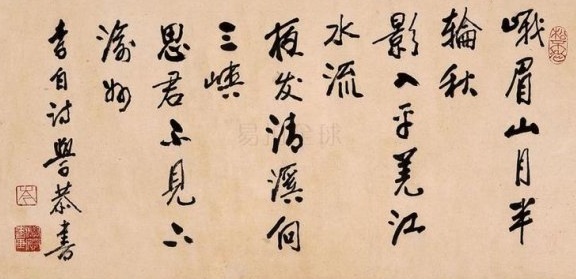 峨眉山月半
輪秋
影入平羌江
水流
夜发清溪向
三峽
思君不見下
渝州
李白诗學恭書